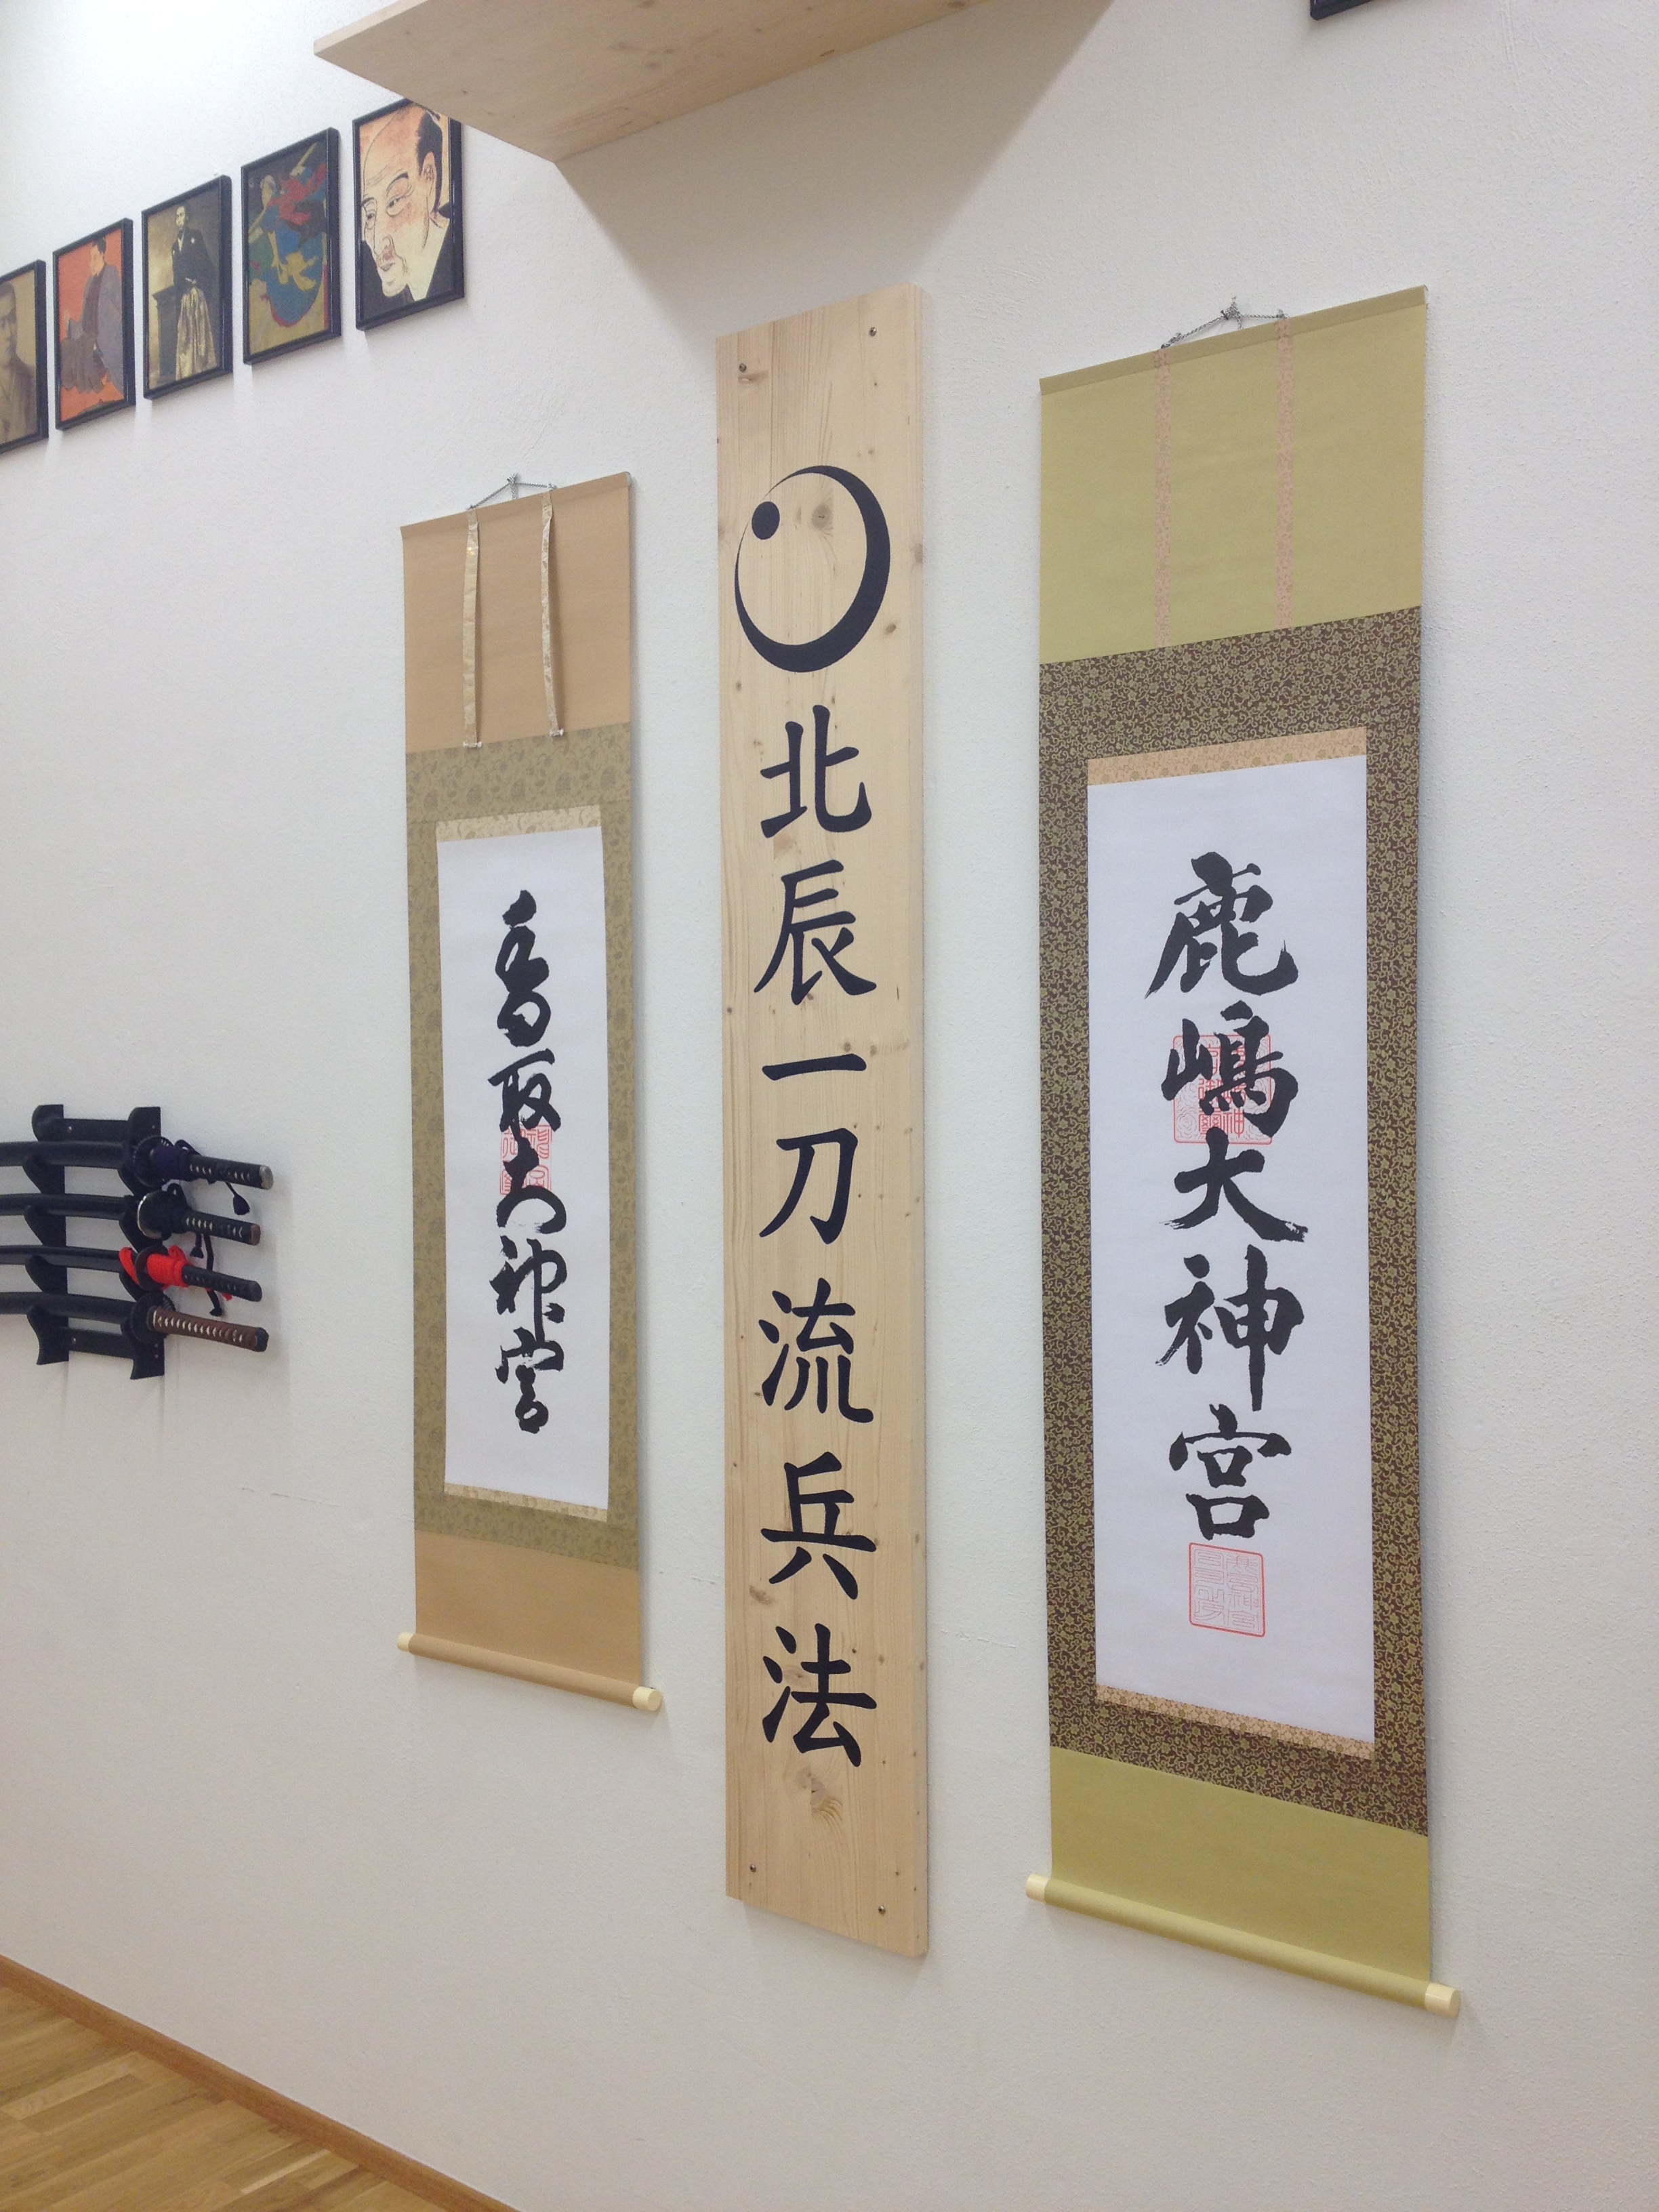 鹿嶋大神宮
北辰一刀流兵法
香取大神宮